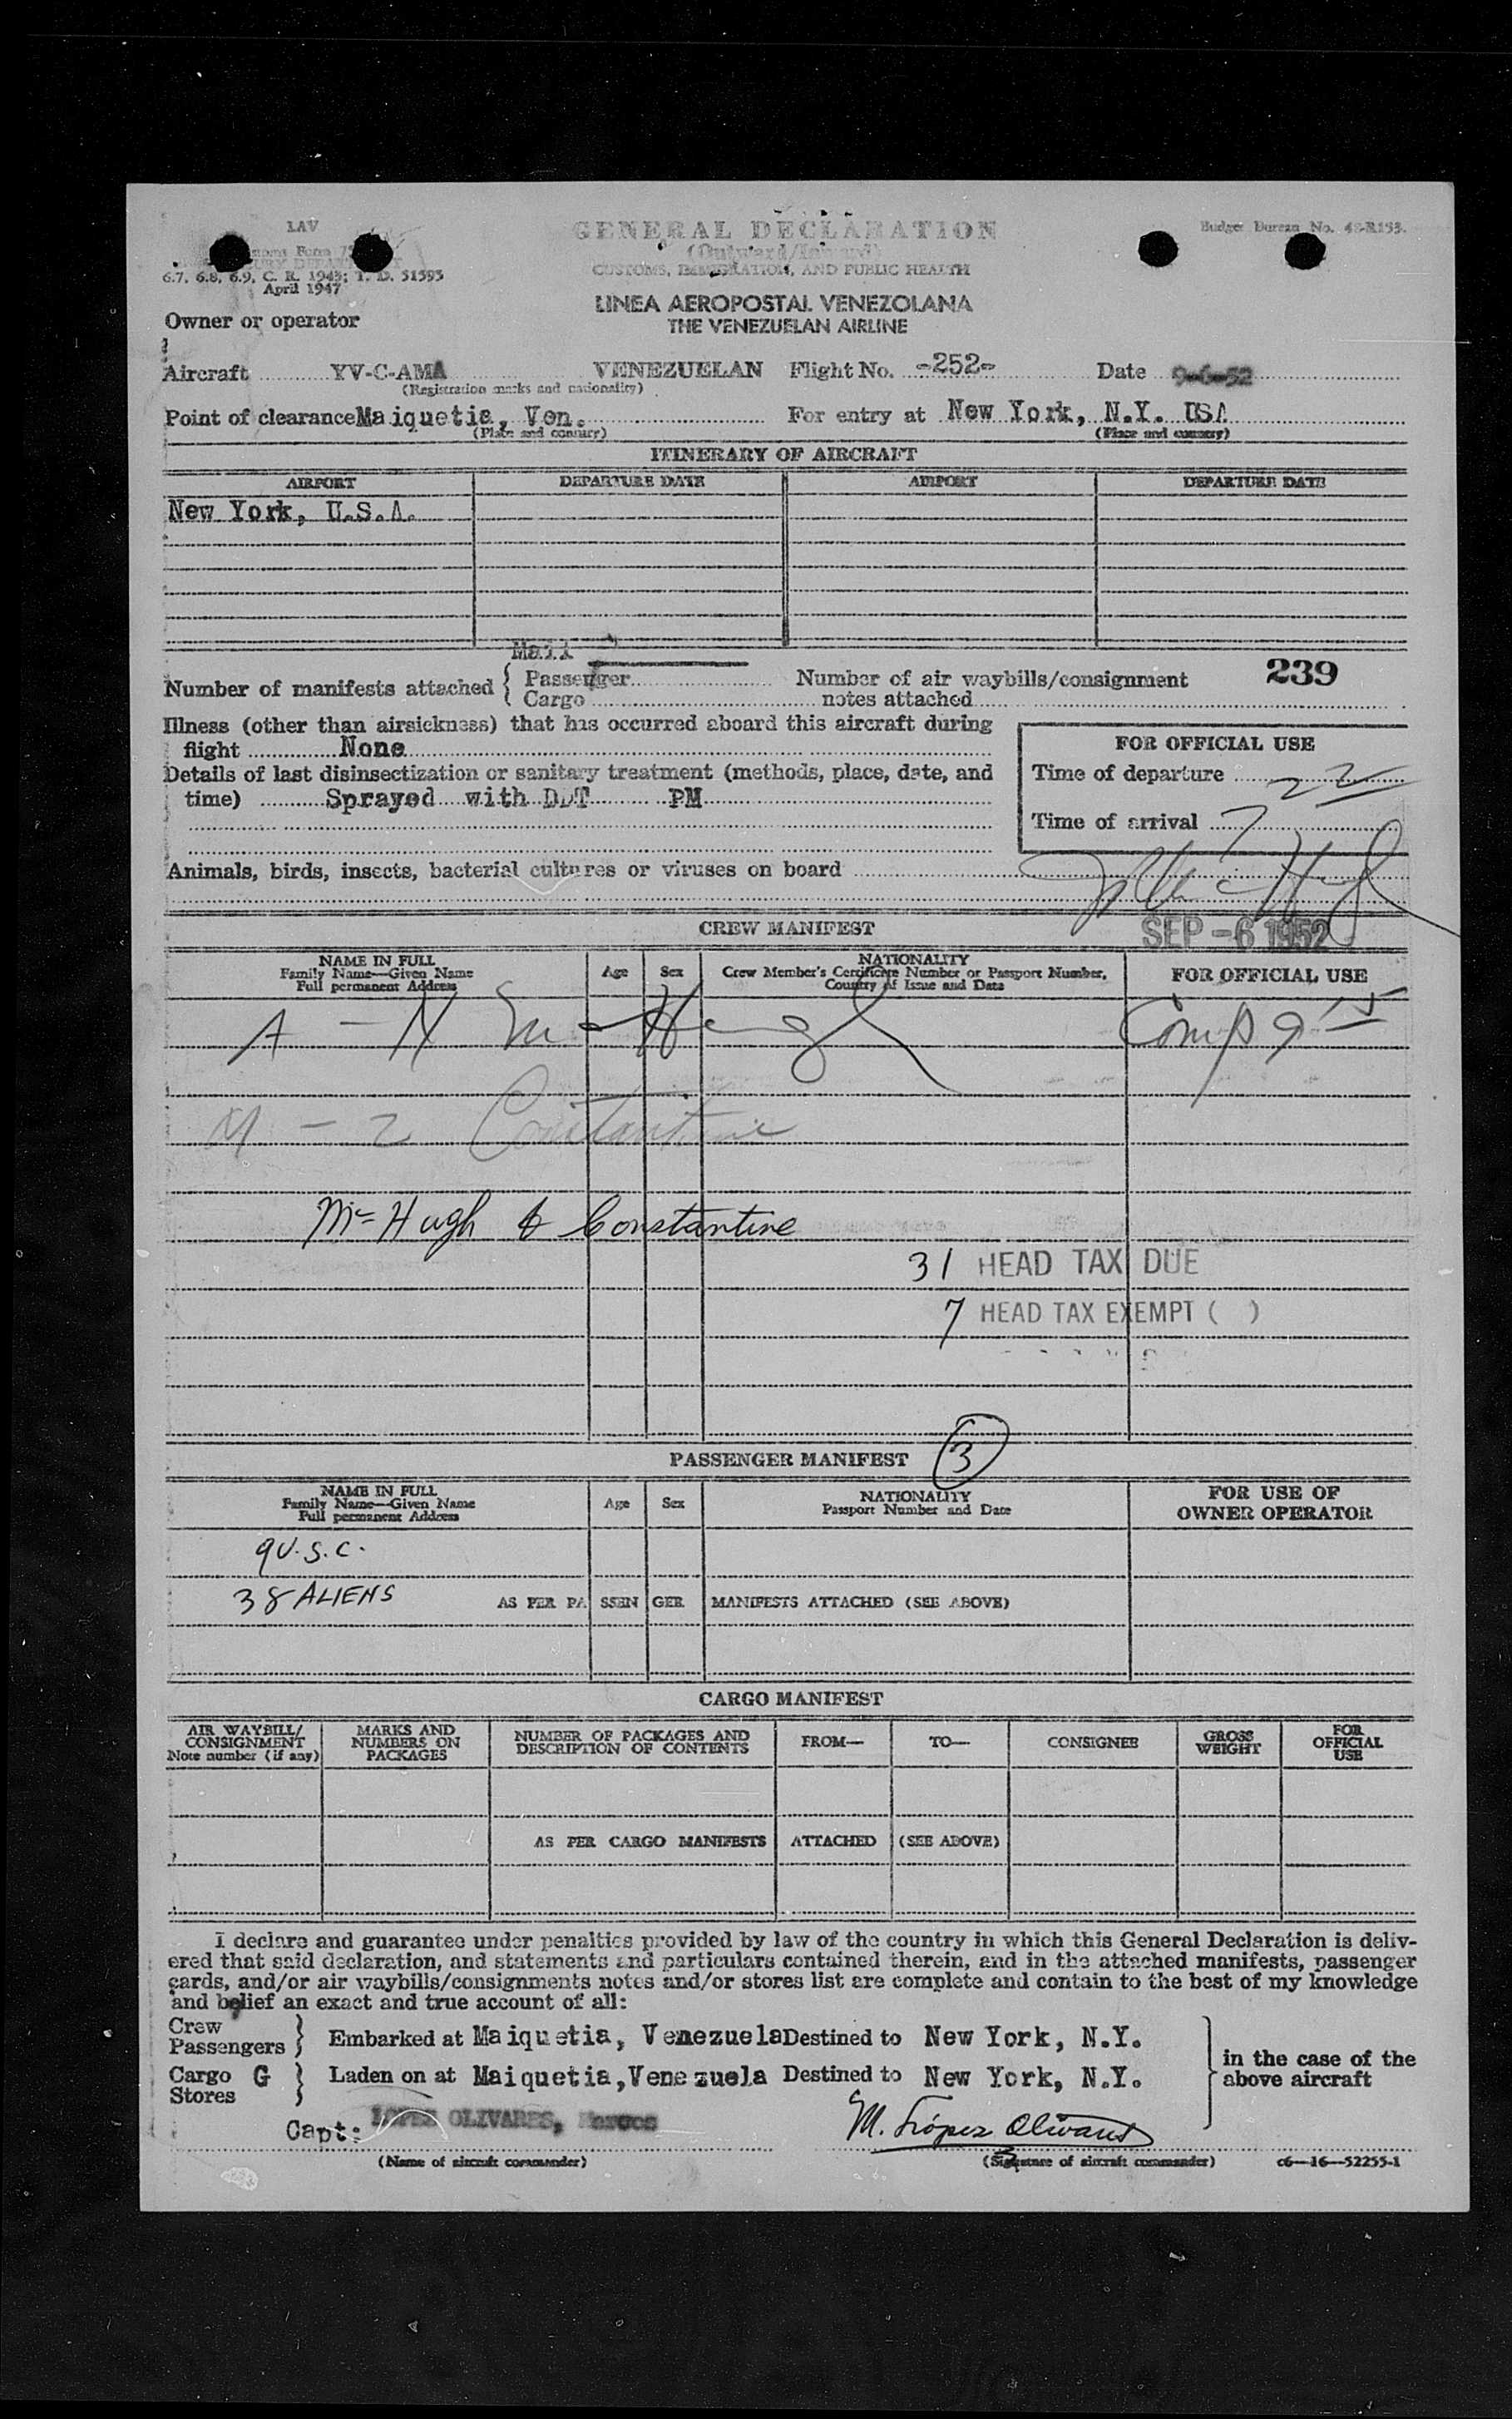 LAV
GENERAL DECLARATION
Budget Bureau No. 48-R153.
(Outward/Inward)
CUSTOMS, IMMIGRATION, AND PUBLIC HEALTH
6.7, 6.8, 6.9, C. R. 1943; T. D. 51593
April 1947
LINEA AEROPOSTAL VENEZOLANA
THE VENEZUELAN AIRLINE
Owner or operator
Aircraft YV-C-AMA VENEZUELAN Flight No. -252- Date 9-6-52
(Registration marks and nationality)
Point of clearance Maiquetia, Ven. For entry at New York, N.Y. USA
(Place and country) (Place and country)
ITINERARY OF AIRCRAFT
AIRPORT DEPARTURE DATE AIRPORT DEPARTURE DATE
New York, U.S.A.
Mail
Number of manifests attached { Passenger Number of air waybills/consignment 239
Cargo notes attached
Illness (other than airsickness) that has occurred aboard this aircraft during
flight None
FOR OFFICIAL USE
Details of last disinsectization or sanitary treatment (methods, place, date, and
time) Sprayed with DDT PM
Time of departure 22
Time of arrival 7
Animals, birds, insects, bacterial cultures or viruses on board
SEP -6 1952
CREW MANIFEST
NAME IN FULL
Family Name—Given Name
Full permanent Address
Age Sex
NATIONALITY
Crew Member's Certificate Number or Passport Number,
Country of Issue and Date
FOR OFFICIAL USE
A - N McHugh Comp 9 15
M - Z Constantine
McHugh & Constantine
31 HEAD TAX DUE
7 HEAD TAX EXEMPT ( )
PASSENGER MANIFEST 3
NAME IN FULL
Family Name—Given Name
Full permanent Address
Age Sex
NATIONALITY
Passport Number and Date
FOR USE OF
OWNER OPERATOR
9 U.S.C.
38 ALIENS AS PER PASSENGER MANIFESTS ATTACHED (SEE ABOVE)
CARGO MANIFEST
AIR WAYBILL/
CONSIGNMENT
Note number (if any)
MARKS AND
NUMBERS ON
PACKAGES
NUMBER OF PACKAGES AND
DESCRIPTION OF CONTENTS
FROM— TO— CONSIGNEE
GROSS
WEIGHT
FOR
OFFICIAL
USE
AS PER CARGO MANIFESTS ATTACHED (SEE ABOVE)
I declare and guarantee under penalties provided by law of the country in which this General Declaration is deliv-
ered that said declaration, and statements and particulars contained therein, and in the attached manifests, passenger
cards, and/or air waybills/consignments notes and/or stores list are complete and contain to the best of my knowledge
and belief an exact and true account of all:
Crew
Passengers } Embarked at Maiquetia, Venezuela Destined to New York, N.Y.
Cargo G
Stores } Laden on at Maiquetia, Venezuela Destined to New York, N.Y.
in the case of the
above aircraft
Capt: LOPEZ OLIVARES, Marcos M. López Olivares
(Name of aircraft commander) (Signature of aircraft commander) c6—16—52255-1